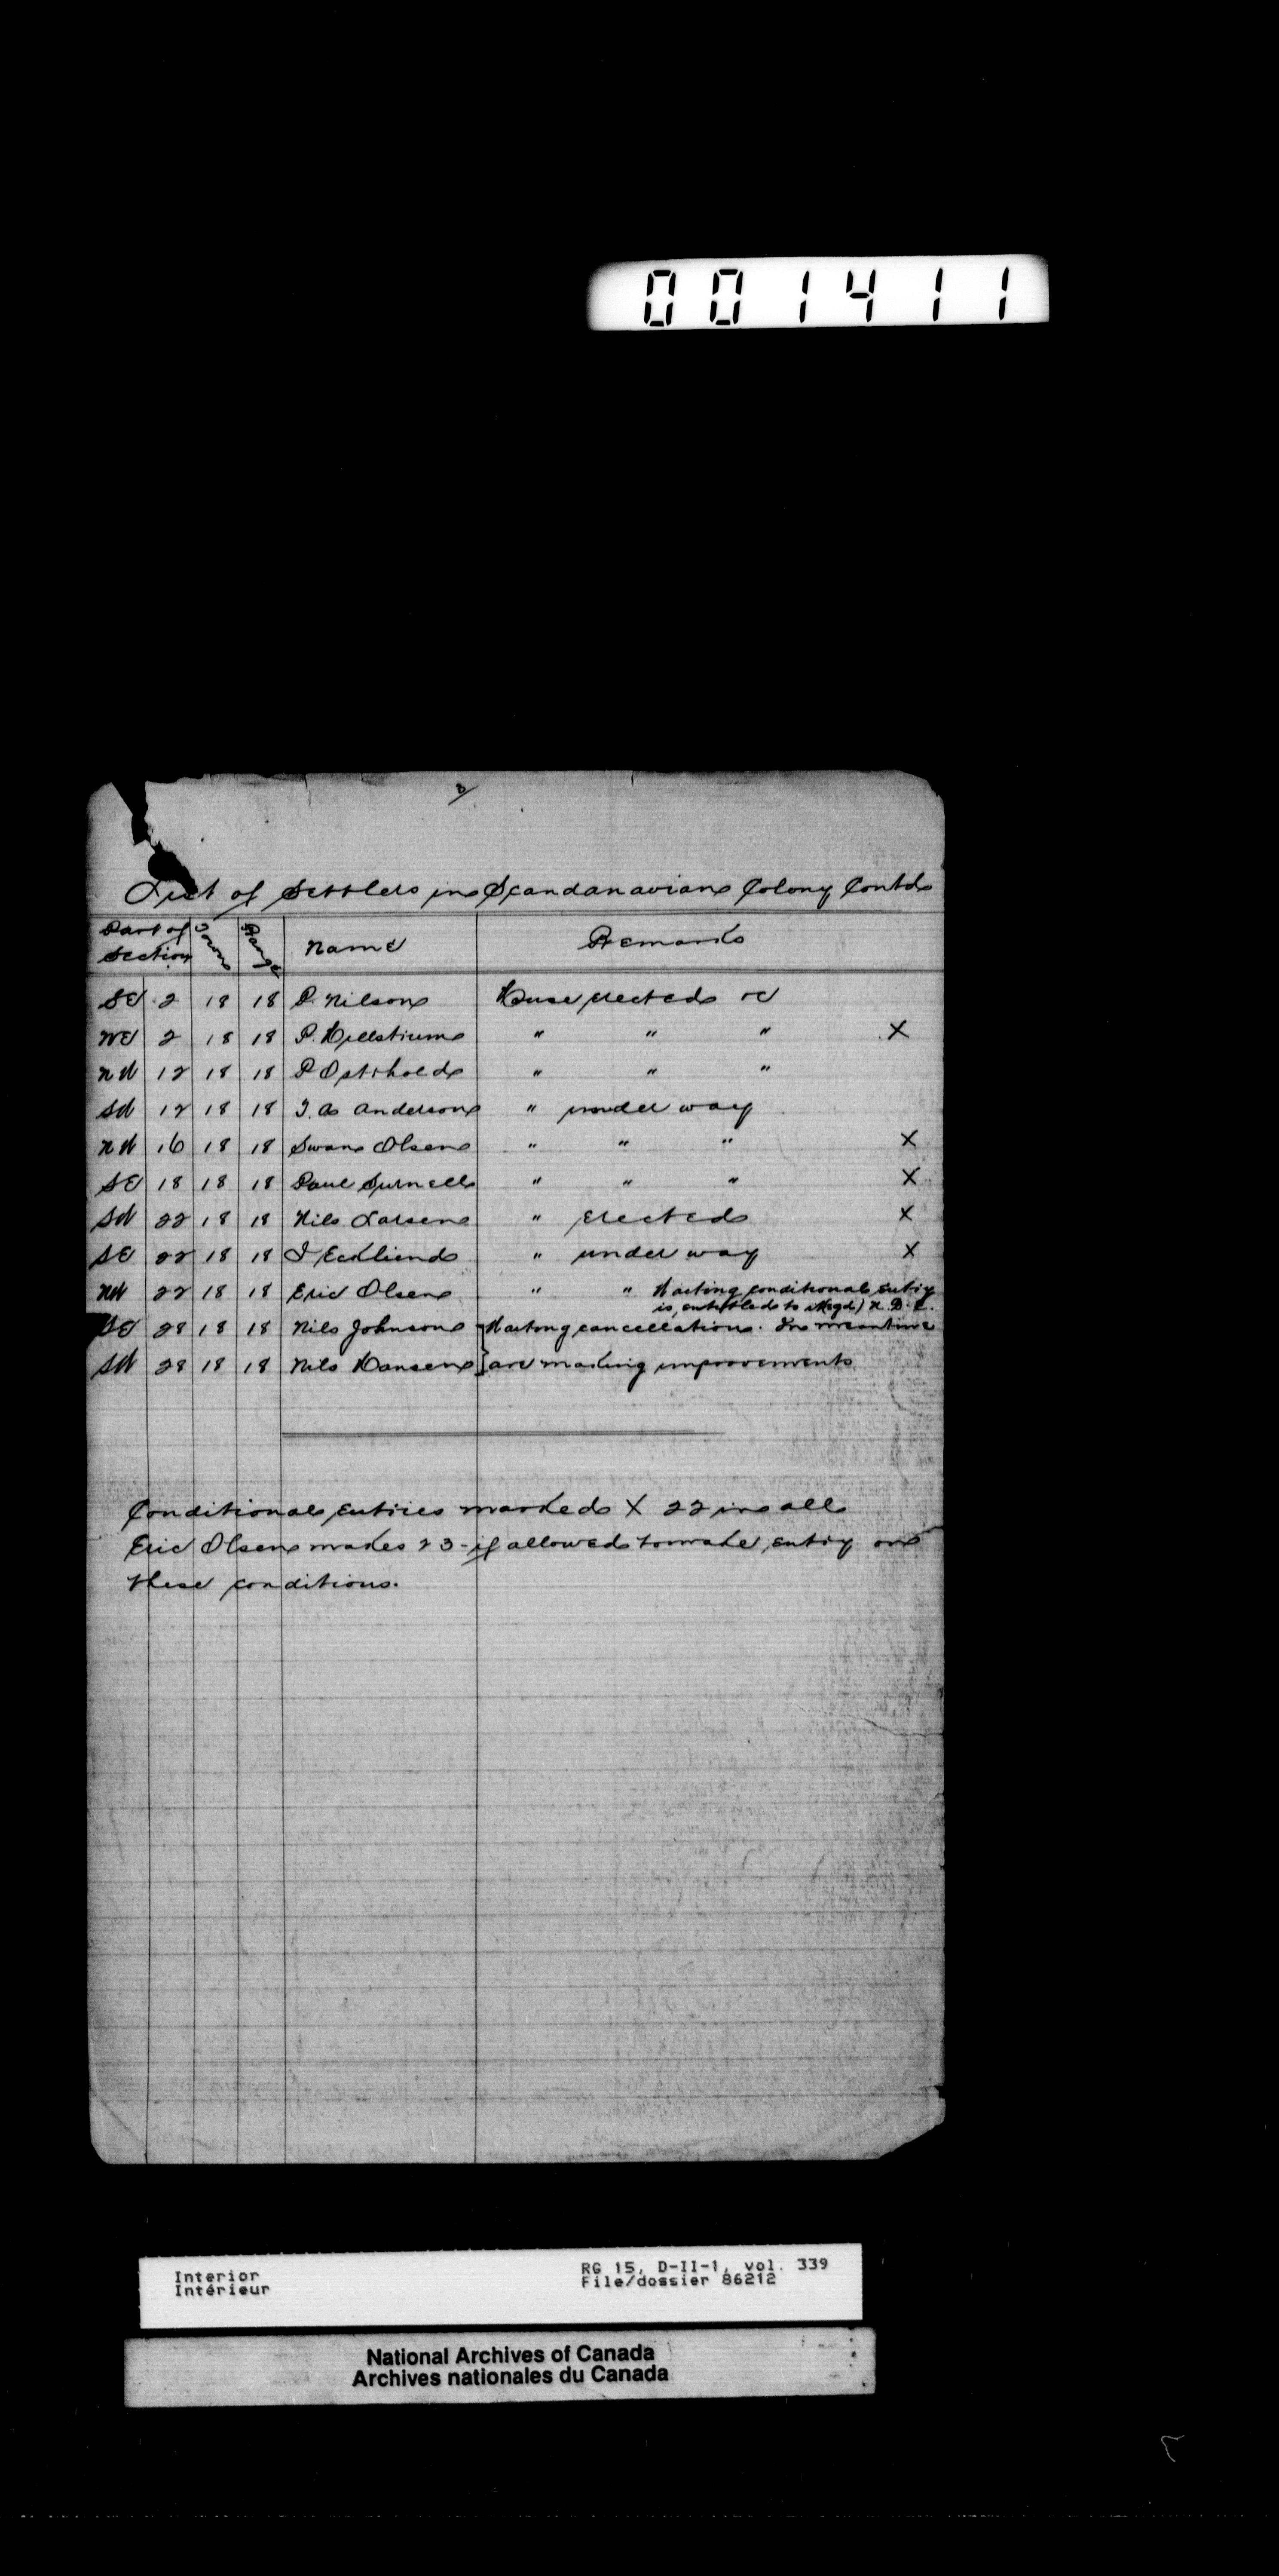 001411
3/
List of Settlers in Scandanavian Colony Contd
Part of Section Town Range Name Remarks
SE 2 18 18 P. Nilson House erected
NE 2 18 18 P. " " " X
NW 12 18 18 P " " "
SW 12 18 18 Anderson " under way
NW 16 18 18 Swan Olsen " " " X
SE 18 18 18 Paul " " " X
SW 22 18 18 Nils Larsen " erected X
SE 22 18 18 " under way X
NW 22 18 18 Eric Olsen " " Waiting conditional entry
is entitled to
SE 28 18 18 Nils Johnson } Waiting cancellation. In meantime
SW 28 18 18 Nils Hansen } are making improvements
Conditional entries marked X 22 in all
Eric Olsen makes 23 - if allowed to make entry on
these conditions.
Interior RG 15, D-II-1, vol. 339
Intérieur File/dossier 86212
National Archives of Canada
Archives nationales du Canada